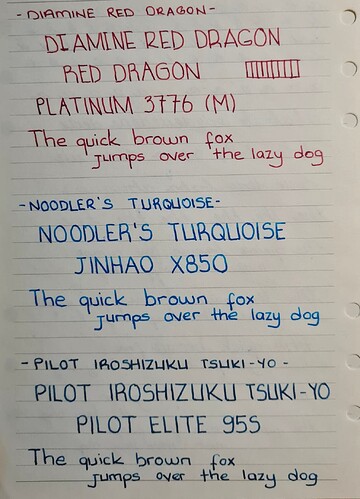 - DIAMINE RED DRAGON -
DIAMINE RED DRAGON
RED DRAGON
PLATINUM 3776 (M)
The quick brown fox
jumps over the lazy dog
- NOODLER'S TURQUOISE -
NOODLER'S TURQUOISE
JINHAO X850
The quick brown fox
jumps over the lazy dog
- PILOT IROSHIZUKU TSUKI-YO -
PILOT IROSHIZUKU TSUKI-YO
PILOT ELITE 95S
The quick brown fox
jumps over the lazy dog